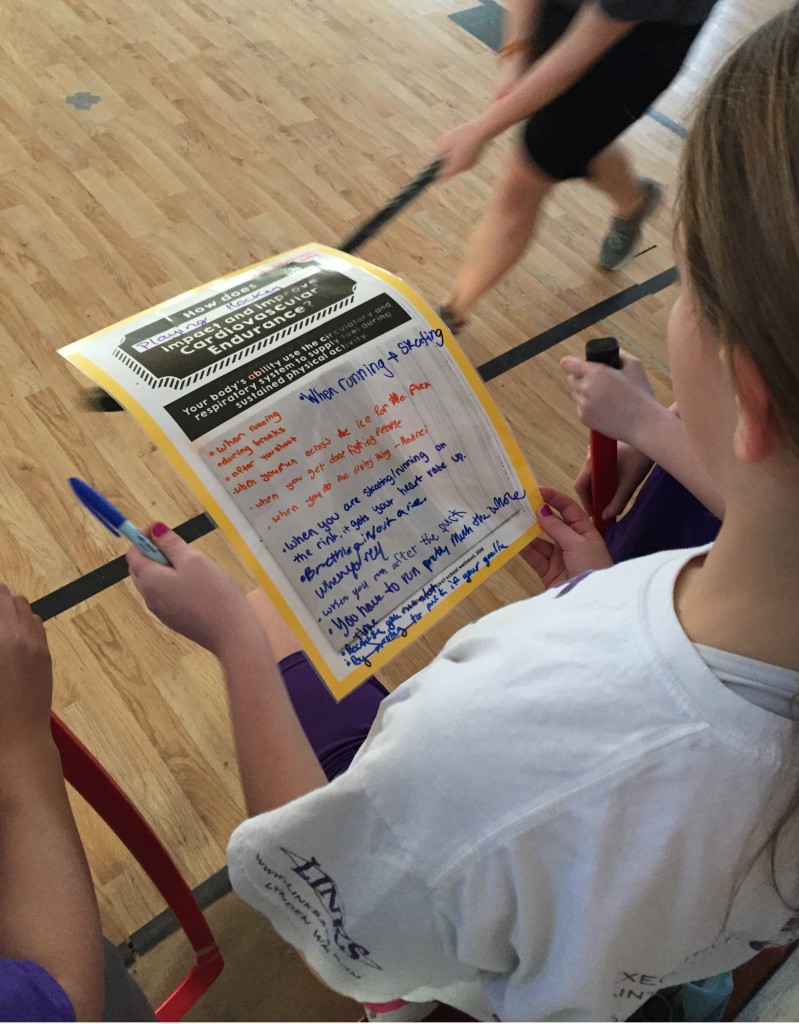 How does
Playing Hockey
impact and improve
Cardiovascular
Endurance?
Your body's ability use the circulatory and
respiratory system to supply fuel during
sustained physical activity.
•When running + Skating
• when running
•during breaks
• after you shoot
-when you run across the ice for the puck
-when you get done fighting people
- when you do the
- Andrei
•When you are skating/running on
the rink, it gets your heart rate up.
•Breathing in/out
when you
•When you run after the puck
•You have to run pretty much the whole
time
•Because you
•By for puck if your goalie
school wellness
LINKS
LYNDEN WA